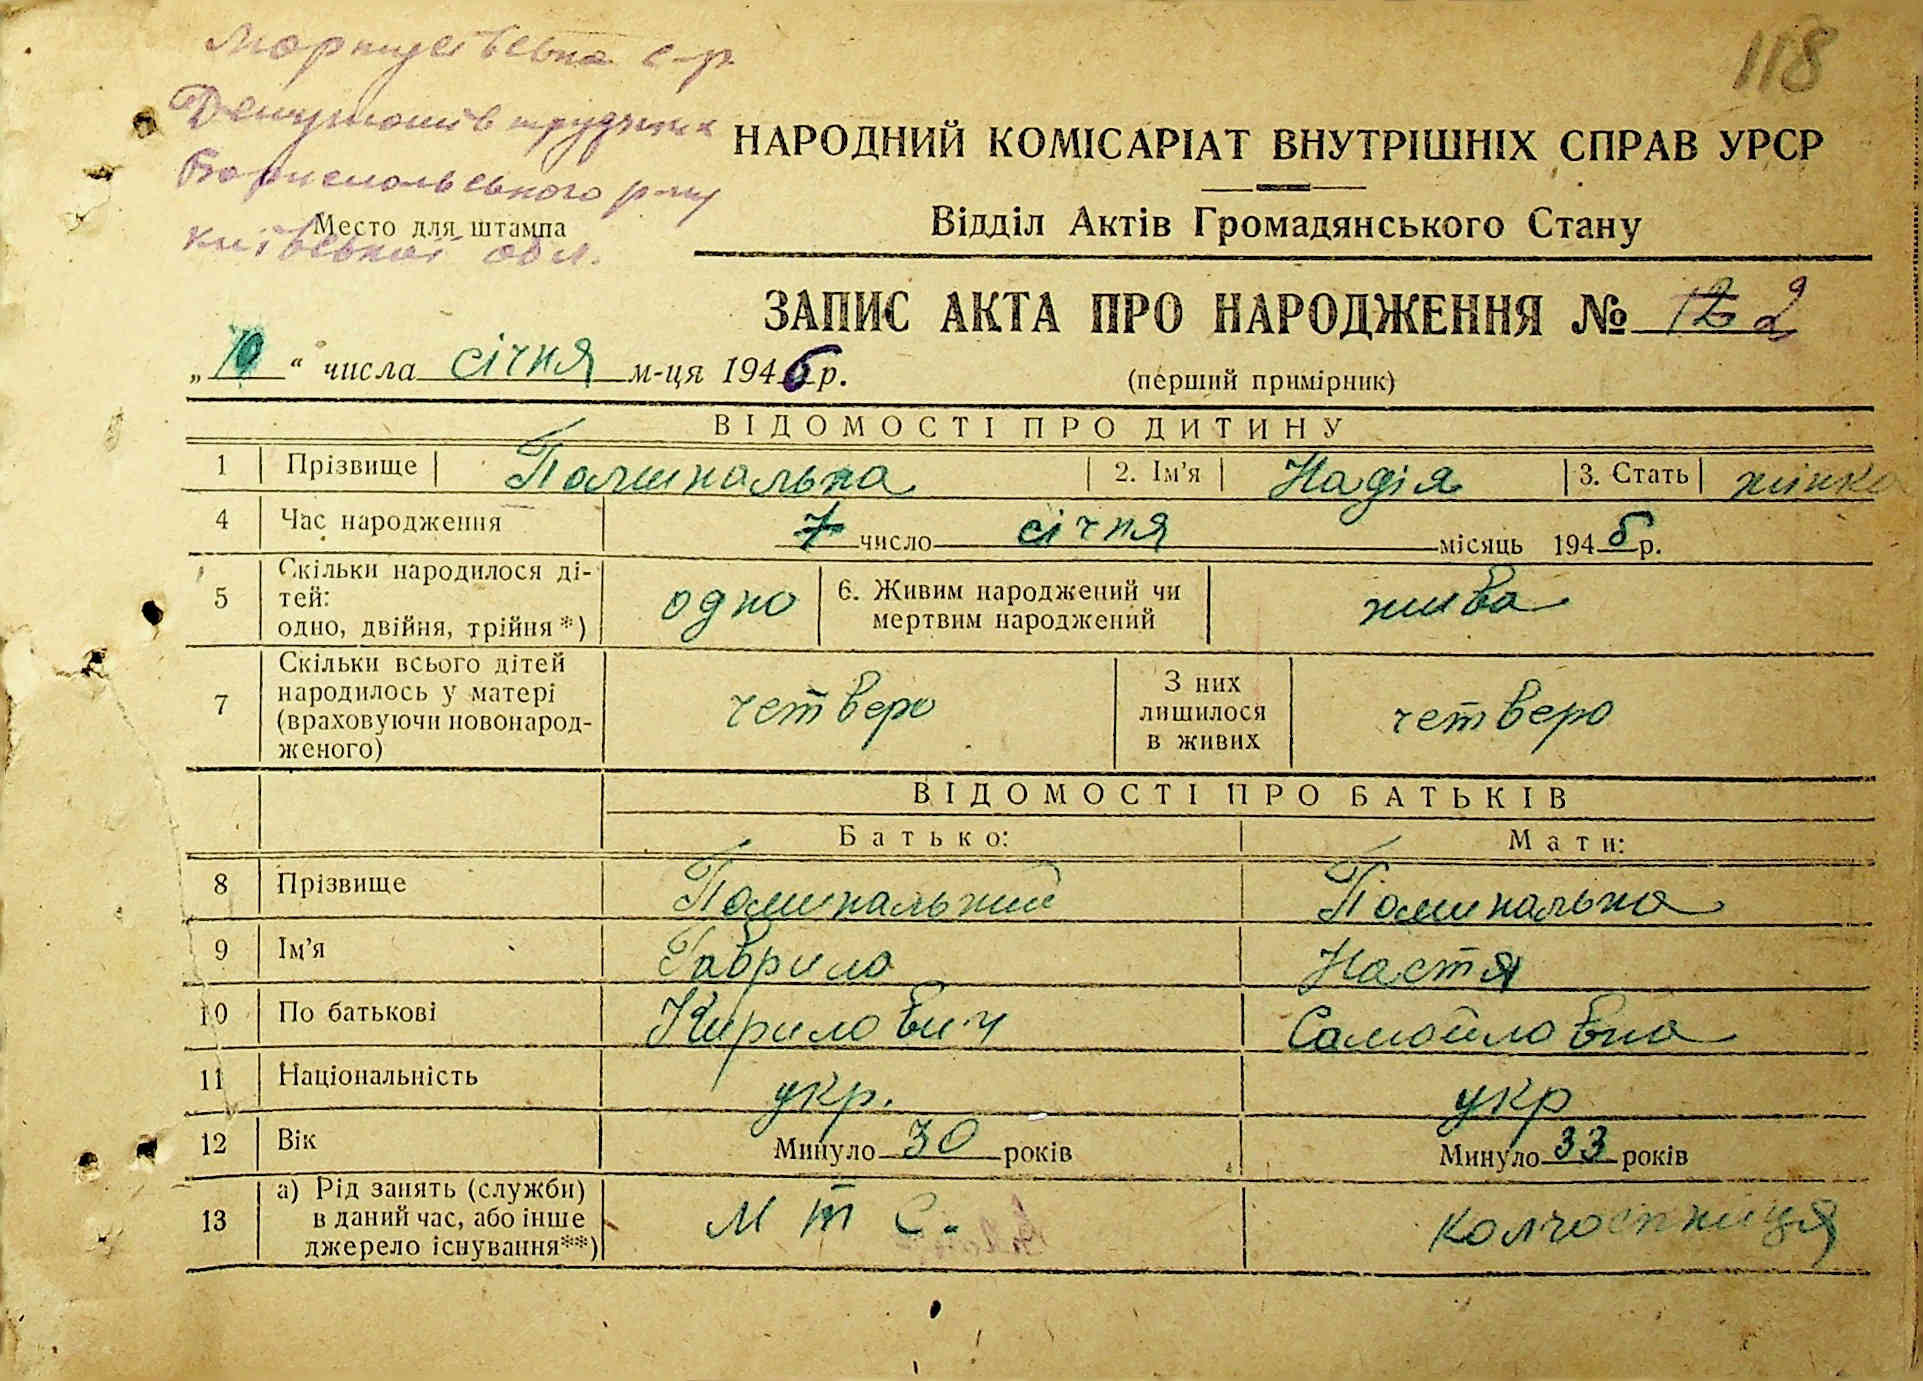 Мартусівська с-р
Депутатів трудящих
Бориспольського р-ну
Місто для штампа
Київської обл.
118
НАРОДНИЙ КОМІСАРІАТ ВНУТРІШНІХ СПРАВ УРСР
Відділ Актів Громадянського Стану
ЗАПИС АКТА ПРО НАРОДЖЕННЯ № 2
„10“ числа січня м-ця 1946 р.
(перший примірник)
ВІДОМОСТІ ПРО ДИТИНУ
1 Прізвище Поминальна 2. Ім'я Надія 3. Стать жінка
4 Час народження 7 число січня місяць 1946 р.
5 Скільки народилося ді-
тей:
одно, двійня, трійня*) одно 6. Живим народжений чи
мертвим народжений жива
7 Скільки всього дітей
народилось у матері
(враховуючи новонарод-
женого) четверо З них
лишилося
в живих четверо
ВІДОМОСТІ ПРО БАТЬКІВ
Батько: Мати:
8 Прізвище Поминальний Поминальна
9 Ім'я Гаврило Настя
10 По батькові Кирилович Самойловна
11 Національність укр. укр
12 Вік Минуло 30 років Минуло 33 років
13 а) Рід занять (служби)
в даний час, або інше
джерело існування**) М Т С. колгоспниця